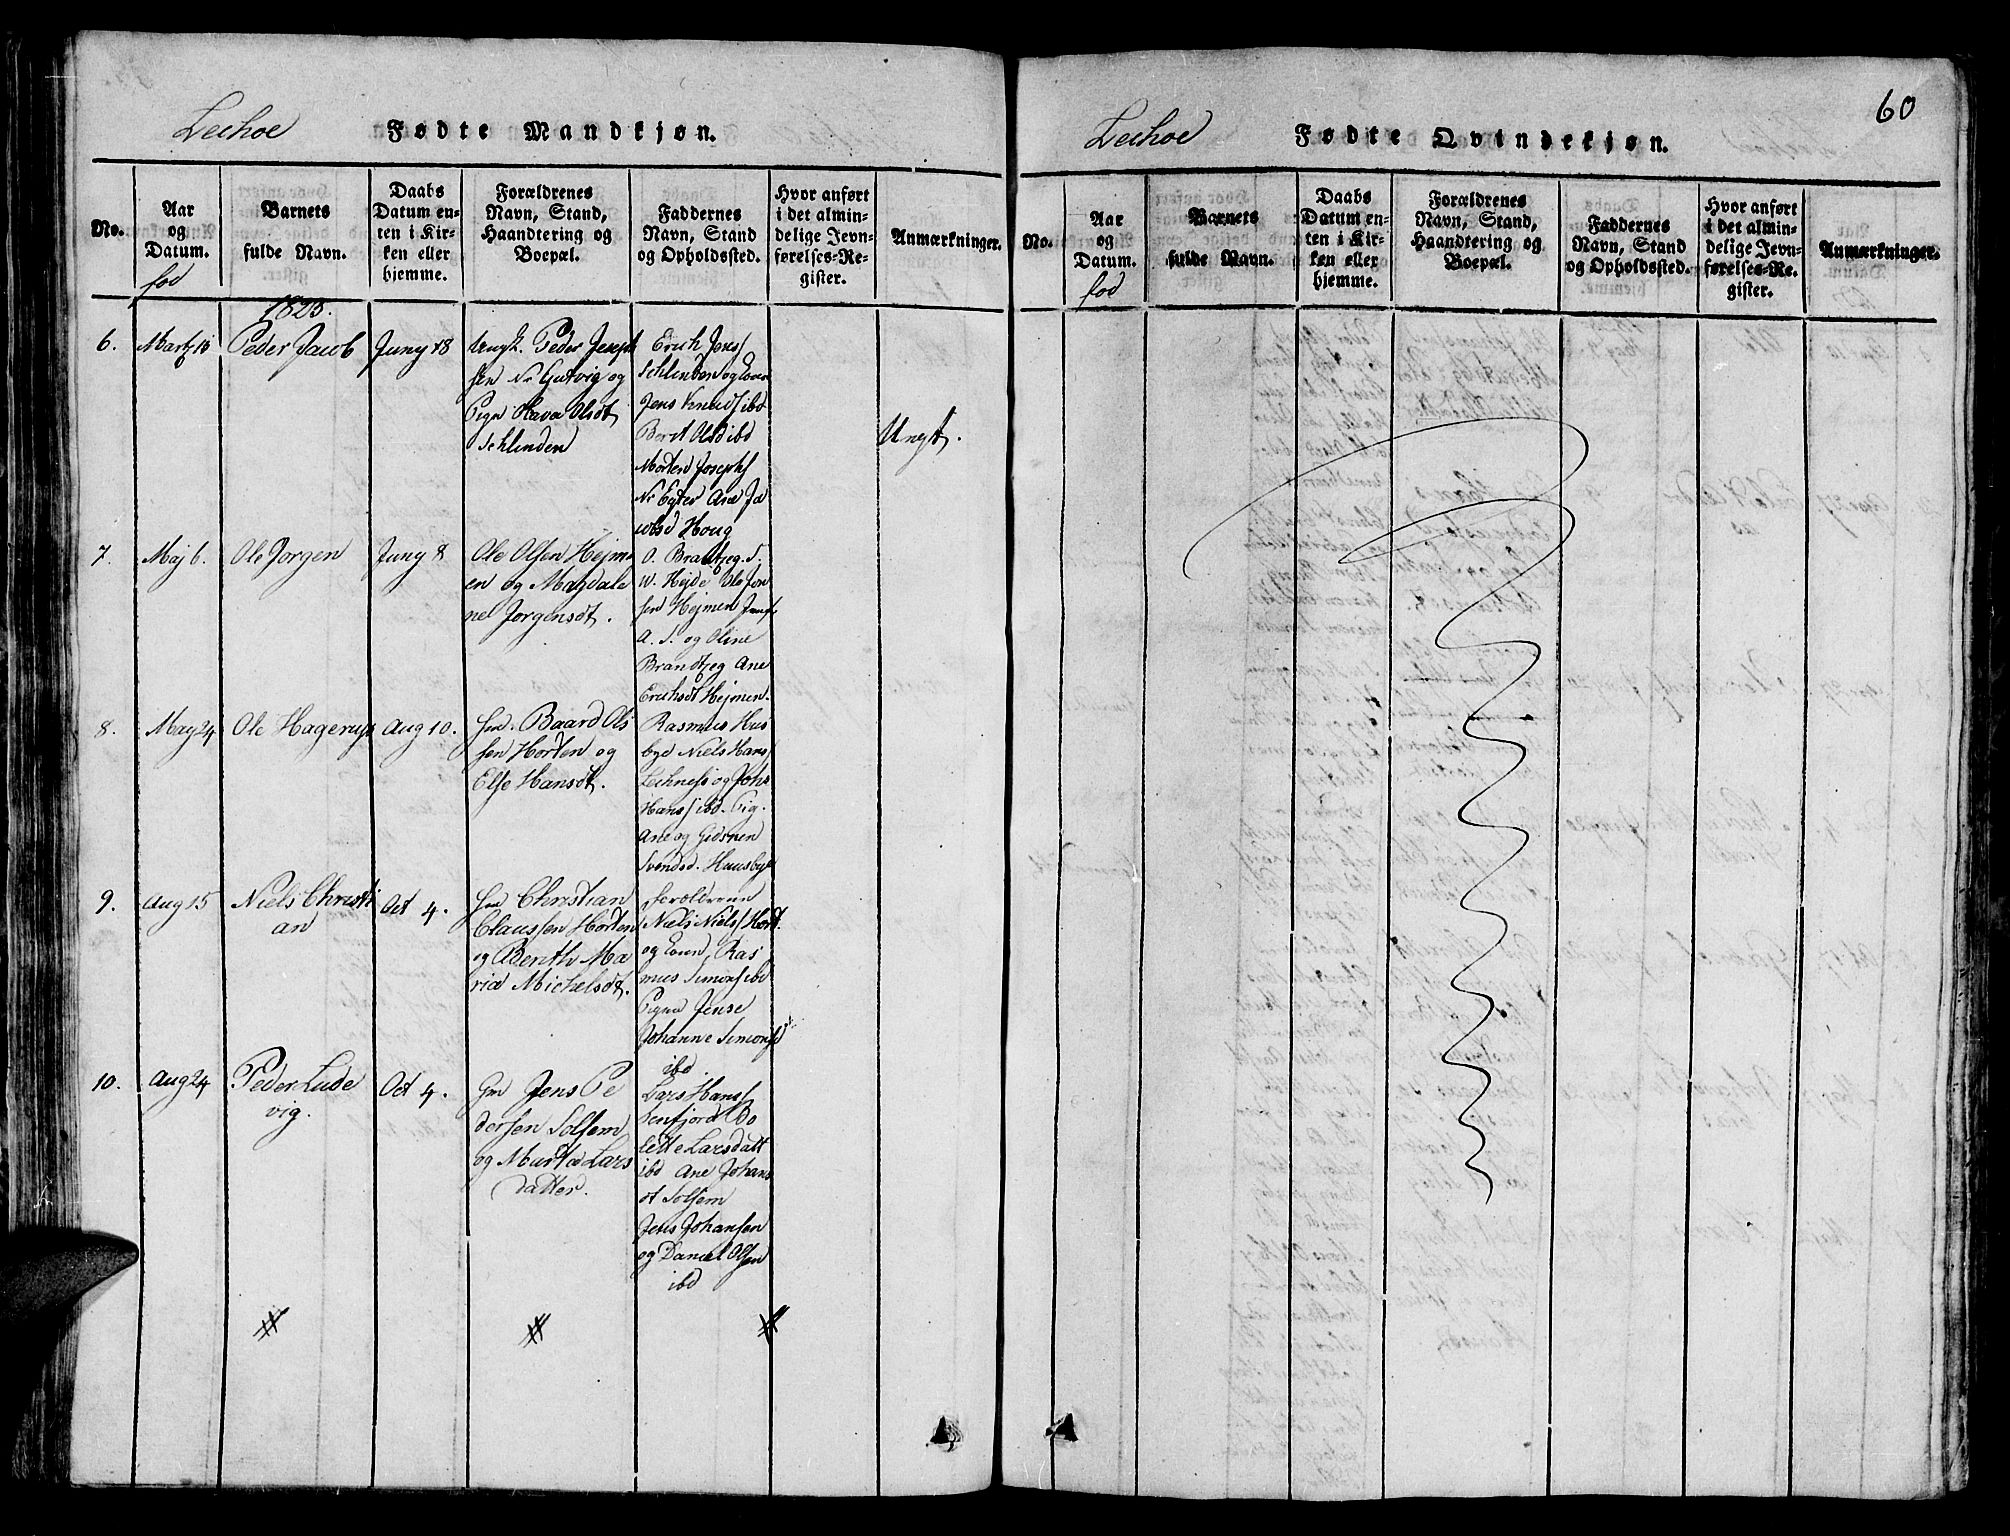 Leehoe Fødte Mandkjøn.
No.
Aar
og
Datum.
fød
Barnets
fulde Navn.
Daabs
Datum en-
ten i Kir-
ken eller
hjemme.
Forældrenes
Navn, Stand,
Haandtering og
Boepæl.
Faddernes
Navn, Stand
og Opholdssted.
Hvor anført
i det almin-
delige Jevn-
førelses-Re-
gister.
Anmærkninger.
1823.
6.
Peder Jacob
Juny 18
Peder Joseph
sen og
Olsdt
Schlinden
Erich Jens
og
Jens Knuds ibd
Berit Olsd ibd
Morten Josephs
Ja
cobsd Houg
Ungk.
7.
Maj 6.
Ole Jørgen
Juny 8
Ole Olsen Hejm
en og Magdale
ne Jørgensdt.
O. Brandtzeg. S.
W. Hejde Ole Jon
sen Hejmen
A. S. og Oline
Brandtzeg Ane
Erichsdt Hejmen.
8.
May 24
Ole Hagerup
Aug 10.
Baard Ols
sen Horten og
Else Hansdt.
Rasmus Hus
bye Niels Hans
Leehnes og Joh
Hans ibd. Pig.
Ane og
Svendsd. Huusbye
9.
Aug 15
Niels Christi
an
Oct 4.
Christian
Claussen Horten
og Berith Ma
ria Michelsdt.
Forældrene
Niels Niels Hort.
og Ras
mus Simons ibd
Jense
Johanne Simonsd
ibd.
10.
Aug 24
Peder Lude
vig.
Oct 4.
Gm Jens Pe
dersen Solsem
og Marta Lars
datter.
Lars Hans
Larsdatt
ibd Ane Johans
dt Solsem
Jens Johansen
og Daniel Olsen
ibd
60
Leehoe Fødte Qvindekjøn.
No.
Aar
og
Datum.
fød
Barnets
fulde Navn.
Daabs
Datum en-
ten i Kir-
ken eller
hjemme.
Forældrenes
Navn, Stand,
Haandtering og
Boepæl.
Faddernes
Navn, Stand
og Opholdssted.
Hvor anført
i det almin-
delige Jevn-
førelses-Re-
gister.
Anmærkninger.